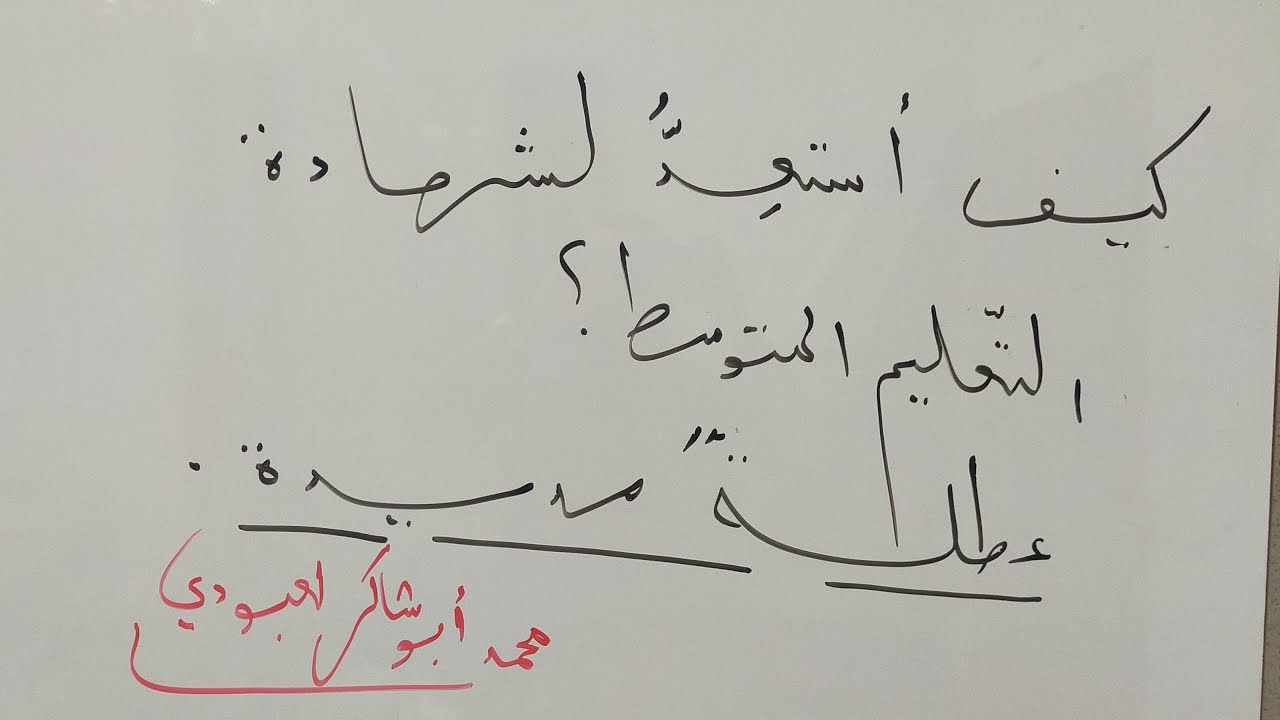 كيف أستعِدُّ لشهادة
التّعليم المتوسط؟
عطلةٌ مديدة.
محمد أبو شاكر العبودي